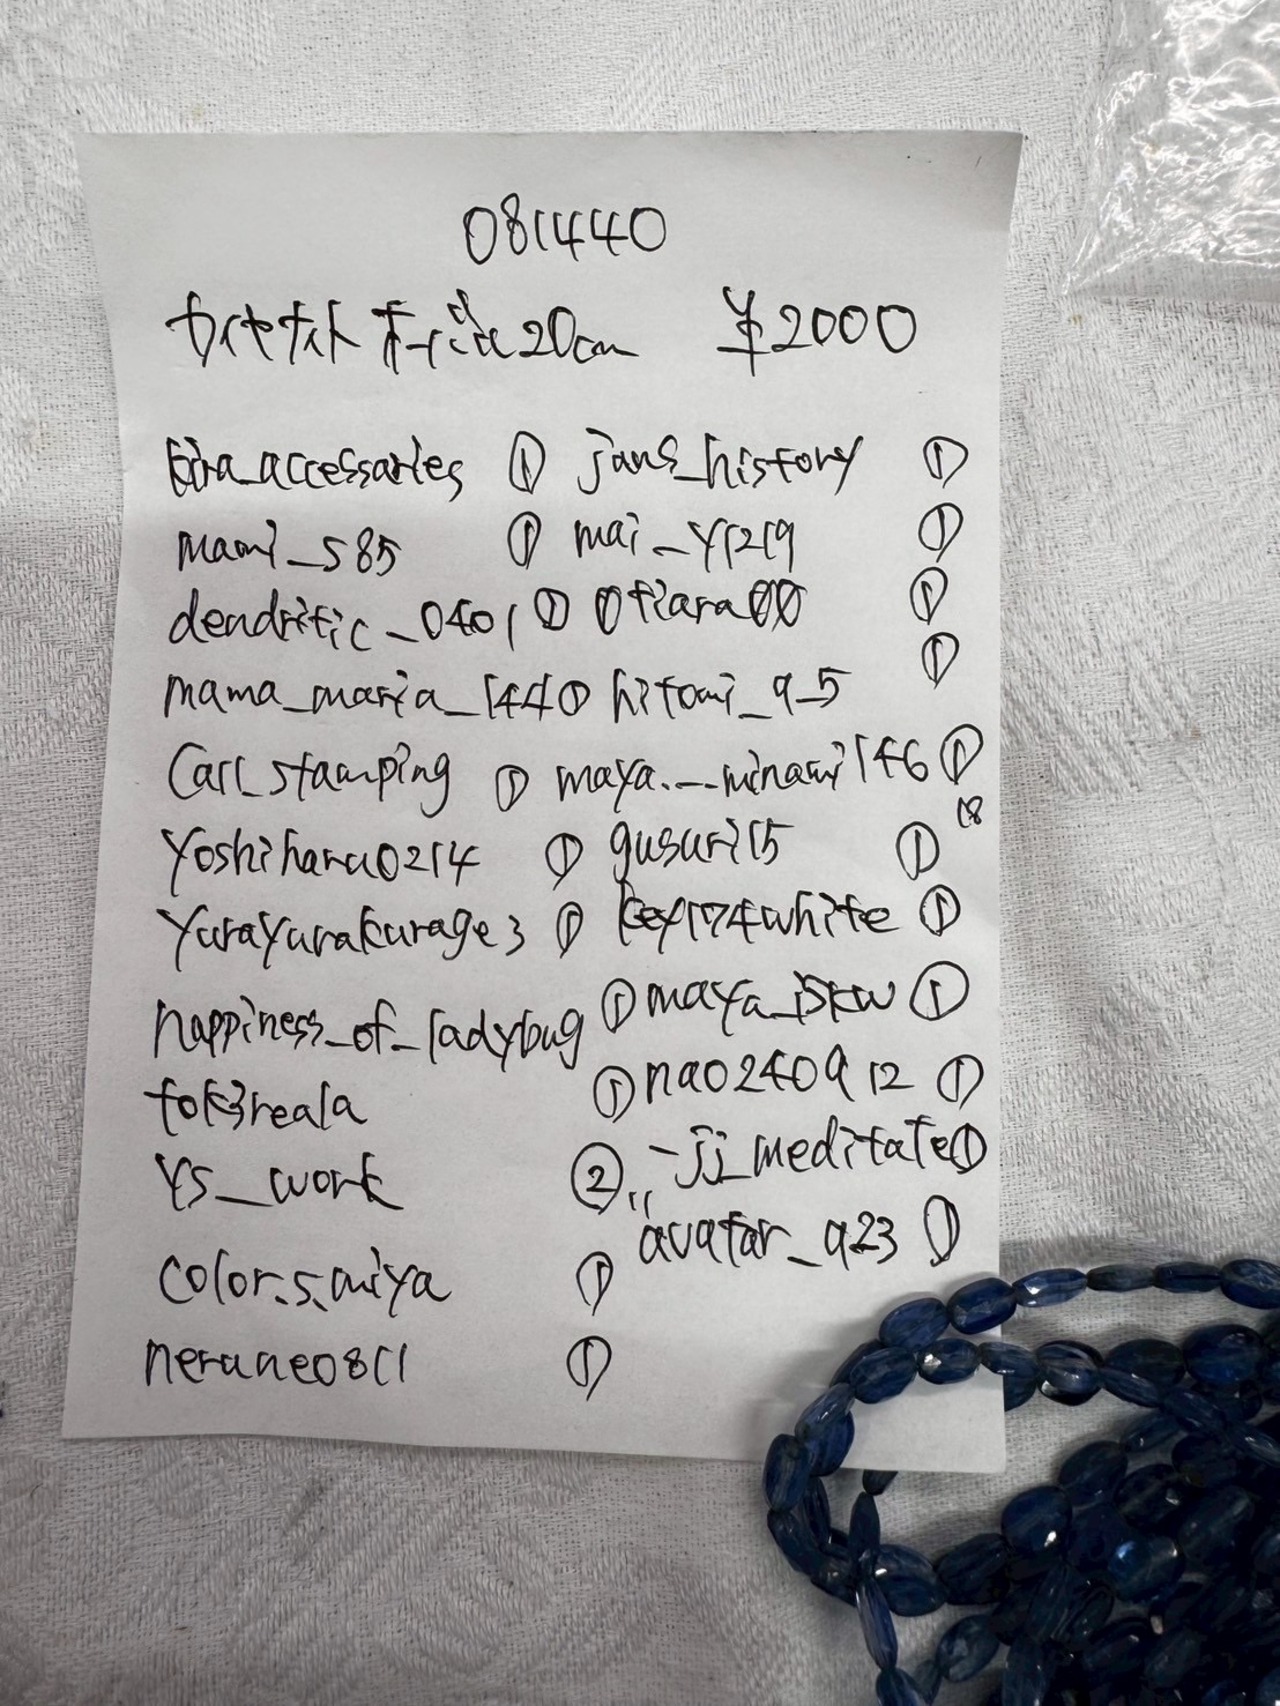 081440
カイヤナイト 20cm ¥2000
kira_accessaries ① jans_history ①
mami_s85 ① mai_y1219 ①
dendritic_0401 ① 0tiara00 ①
mama_maria_144 ① hitomi_9_5 ①
Carl_stamping ① maya.__minami146 ①
18
yoshiharu0214 ① gusuri15 ①
yurayurakurage3 ① key174white ①
happiness_of_ladybug ① maya_iskw ①
tok3reala ① nao240912 ①
ys__work ② _jj_meditate ①
color.s.miya ① avatar_923 ①
nerune0811 ①